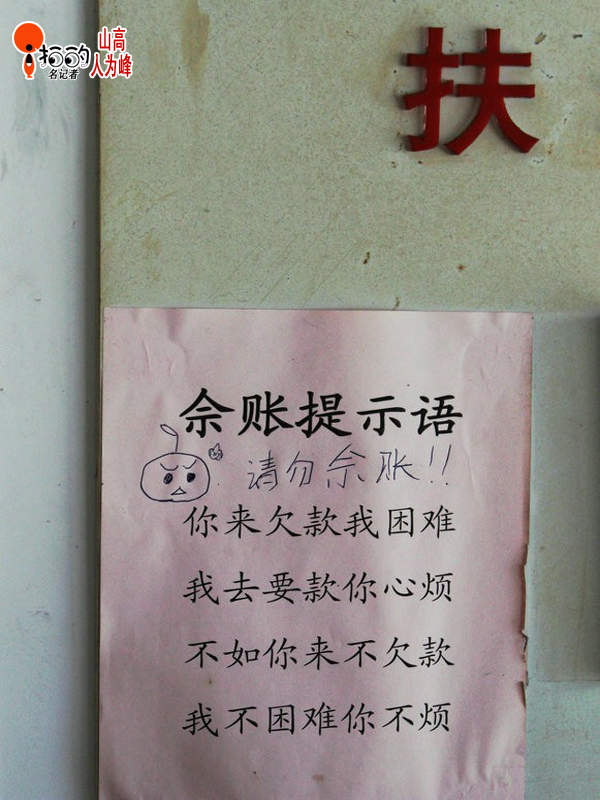 拍的
名记者
山高
人为峰
扶
佘账提示语
请勿佘账!!
你来欠款我困难
我去要款你心烦
不如你来不欠款
我不困难你不烦